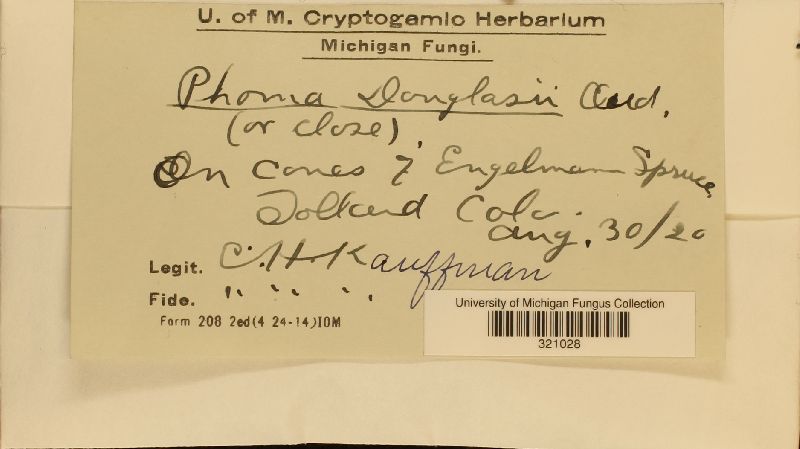 U. of M. Cryptogamic Herbarium
Michigan Fungi.
Phoma Douglasii Oud.
(or close),
On cones of Engelmann Spruce
Tolland Colo.
Aug. 30/20
Legit. C. H. Kauffman
Fide. " " " "
Form 208 2ed(4 24-14)10M
University of Michigan Fungus Collection
321028